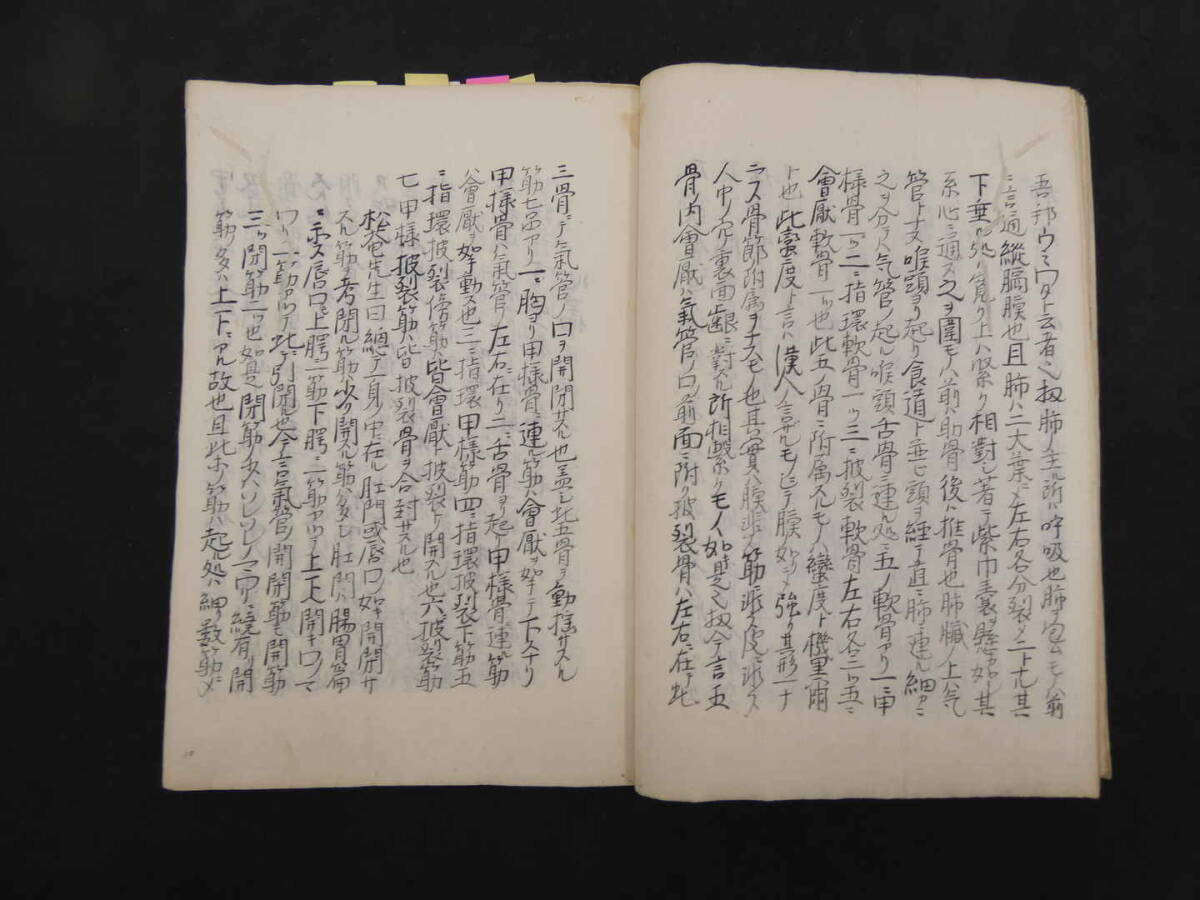 吾邦ウミワタト云者也扨肺ノ主ル所ハ呼吸也肺ヲ包ムモノハ前
ニ言過縦膈膜也且肺ハ二大葉ニメ左右各分裂メ二ト十其
下垂ル処ハ寛ク上ハ緊ク相對シ著テ紫巾嚢ヲ懸如シ其
系心ニ通ス之ヲ圍モノハ前ハ肋骨後ハ椎骨也肺臓ノ上ハ气
管トナス喉頭ヨリ起リ食道ト並ヒ頭ヲ経テ直ニ肺ニ連ル細カニ
之ヲ分テハ气管ノ起ル喉頭舌骨ニ連ル処ニ五ノ軟骨アリ一ニ甲
様骨一ツ二ニ指環軟骨一ツ三ニ披裂軟骨左右各二ツ五ニ
會厭軟骨一ツ也此五ノ骨ニ附属スルモノハ蠻度ト機里爾
ト也此蠻度ト言ハ漢人ノ言ザルモノニテ膜ノ如クメ強ク其形一ナ
ラス骨節附属ヲナスモノ也其実ハ膜ニ非ス筋ニ非ス皮ニ非ス
人中ノ穴裏面齦ニ對スル所相繋クモノハ如是也扨今言五
骨ノ内會厭ハ氣管ノ口ノ前面ニ附ク披裂骨ハ左右ニ在テ此
三骨ニテ氣管ノ口ヲ開閉サスル也蓋シ此五骨ヲ動揺サスル
筋七品アリ一ニ胸ヨリ甲様骨ニ連ル筋ハ會厭ヲ挙テ下ス十リ
甲様骨ハ氣管ノ左右ニ在リ二ニ舌骨ヨリ起ル甲様骨連筋
ハ會厭ヲ挙動ス也三ニ指環甲様筋四ニ指環披裂下筋五
ニ指環披裂傍筋ハ皆會厭ト披裂ト開スル也六ニ披裂筋
七甲様披裂筋ハ皆披裂骨ヲ合封サスル也
松菴先生曰總テ一身ノ中ニ在ル肛門或唇口ノ如キ開閉サ
スル筋ヲ考閉ル筋少ク開スル筋多シ肛門ハ腸胃篇
ニ示ス唇口ハ上腭ニ一筋下腭ニ一筋アツテ上下ヘ開キ口ノマ
ワリ一筋アツテ此ヲ引閉ル也今言氣管ノ開閉筋モ開筋
三ツ閉筋二ツ也如是閉筋少キハソレソレノ一穴ニ繞有リ開
筋ノ多ハ上下ニアル故也且此ホノ筋ハ起ル処ハ細ク数筋ニメ